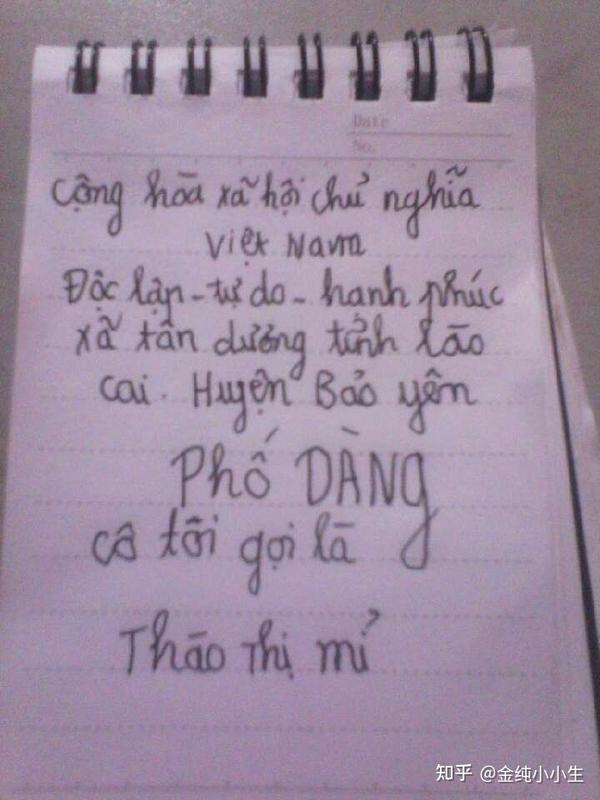 Date
No.
cộng hòa xã hội chủ nghĩa
Việt Nam
Độc lập - tự do - hạnh phúc
xã tân dương tỉnh lào
cai. Huyện Bảo yên
PHố DÀNg
cô tôi gọi là
Thào Thị mỉ
知乎 @金纯小小生